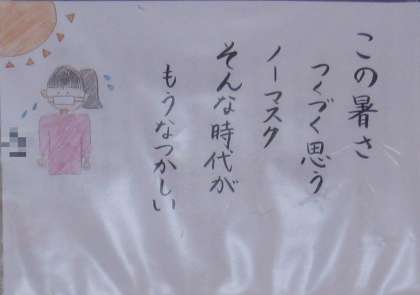 この暑さ
つくづく思う
ノーマスク
そんな時代が
もうなつかしい